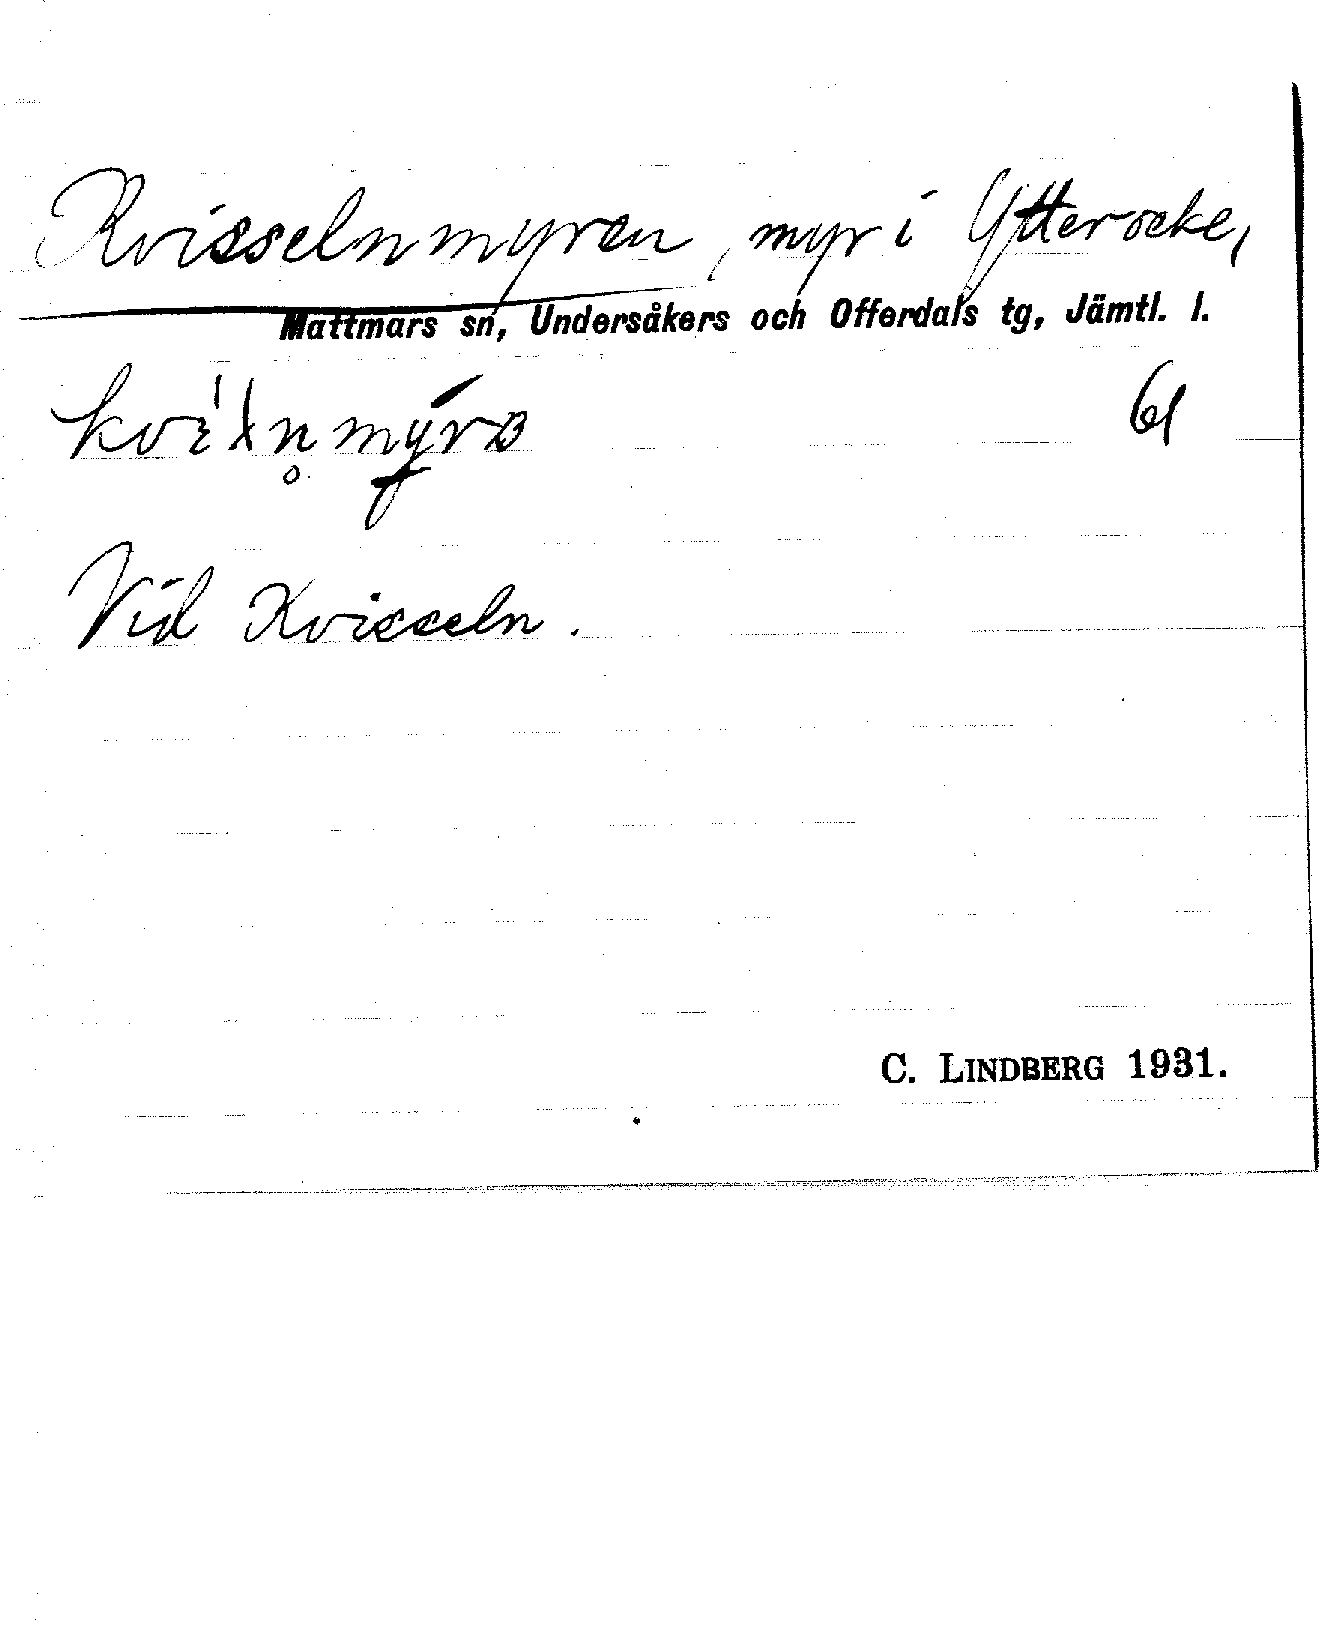 Kvisselnmyren, myr i Ytterocke,
Mattmars sn, Undersåkers och Offerdals tg, Jämtl. l.
61
Vid Kvisseln.
C. LINDBERG 1931.